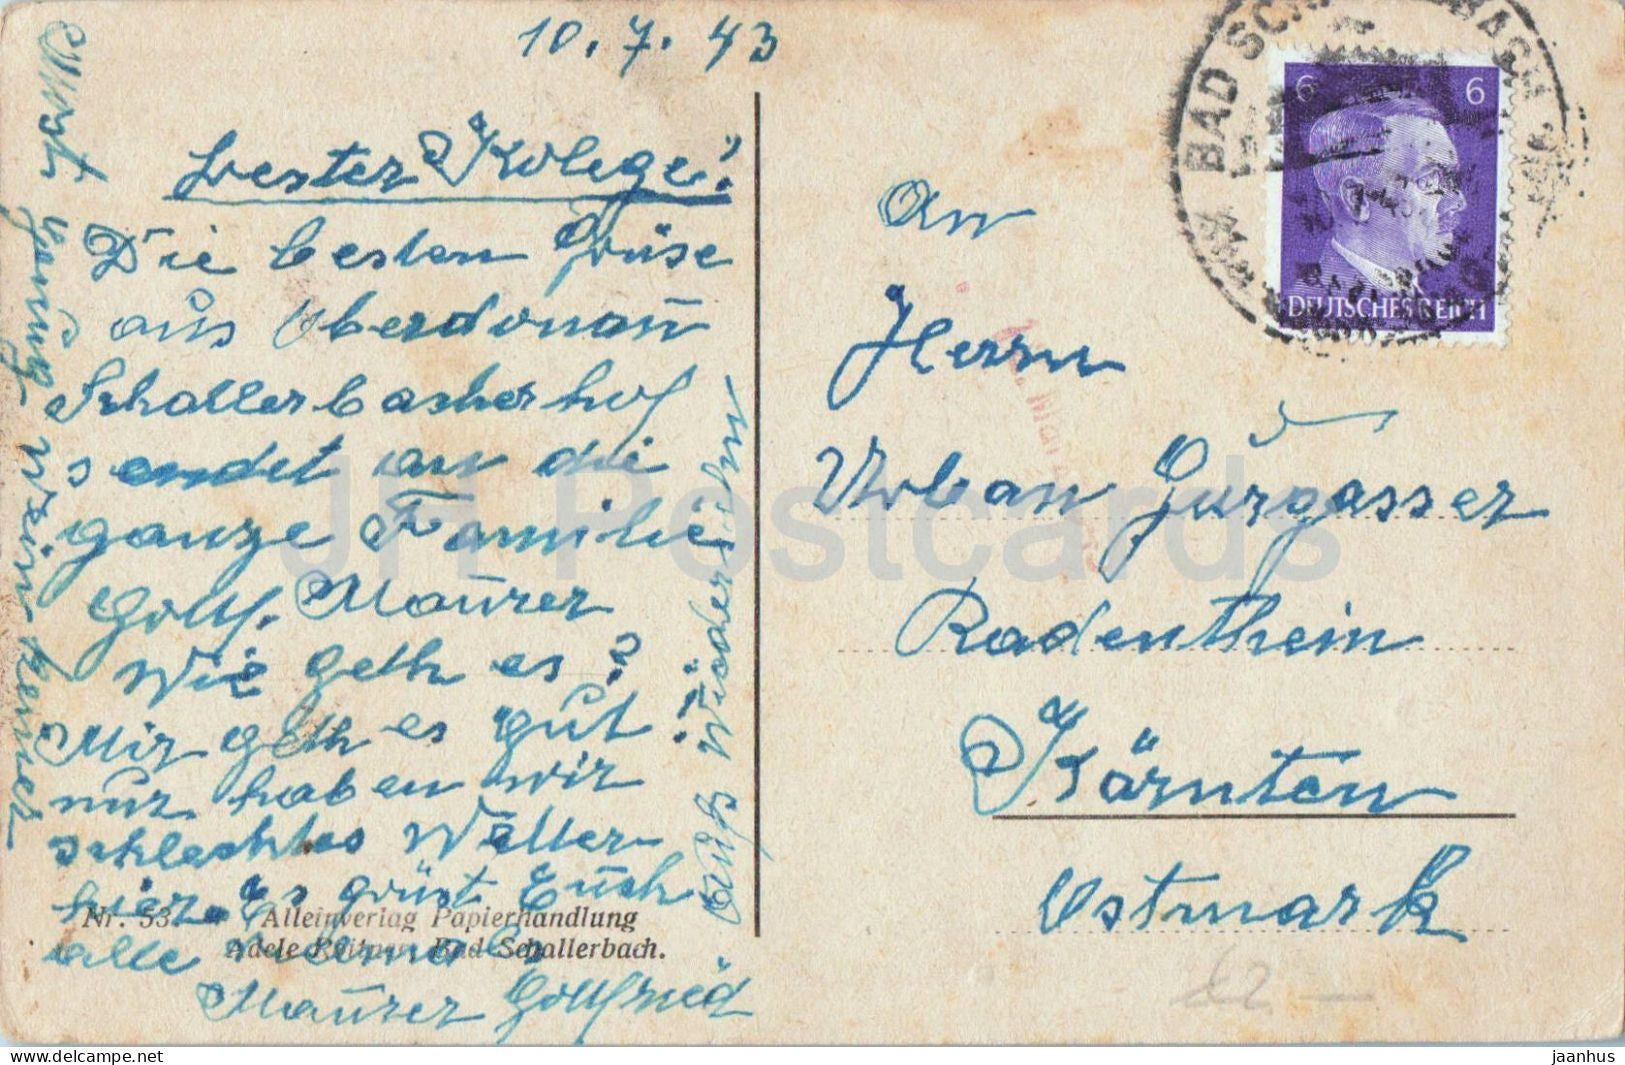 10. 7. 43
Werter Kolege!
Die besten Grüse
aus Oberdonau
Schallerbacherhof
sendet an die
ganze Familie
Gottf. Maurer
Wie geth es?
Mir geth es gut
nur haben wir
schlechtes Wetter
hier. Es grüst Euch
alle
Maurer Gottfried
Auf Wiedersehen!
wenig Wein keiner
Nr. 53. Alleinverlag Papierhandlung
Adele Bad Schallerbach.
An
Herrn
Urban Gurgasser
Radenthein
Kärnten
Ostmark
BAD SCHALLERBACH
6 6
DEUTSCHES REICH
JH Postcards
www.delcampe.net
jaanhus